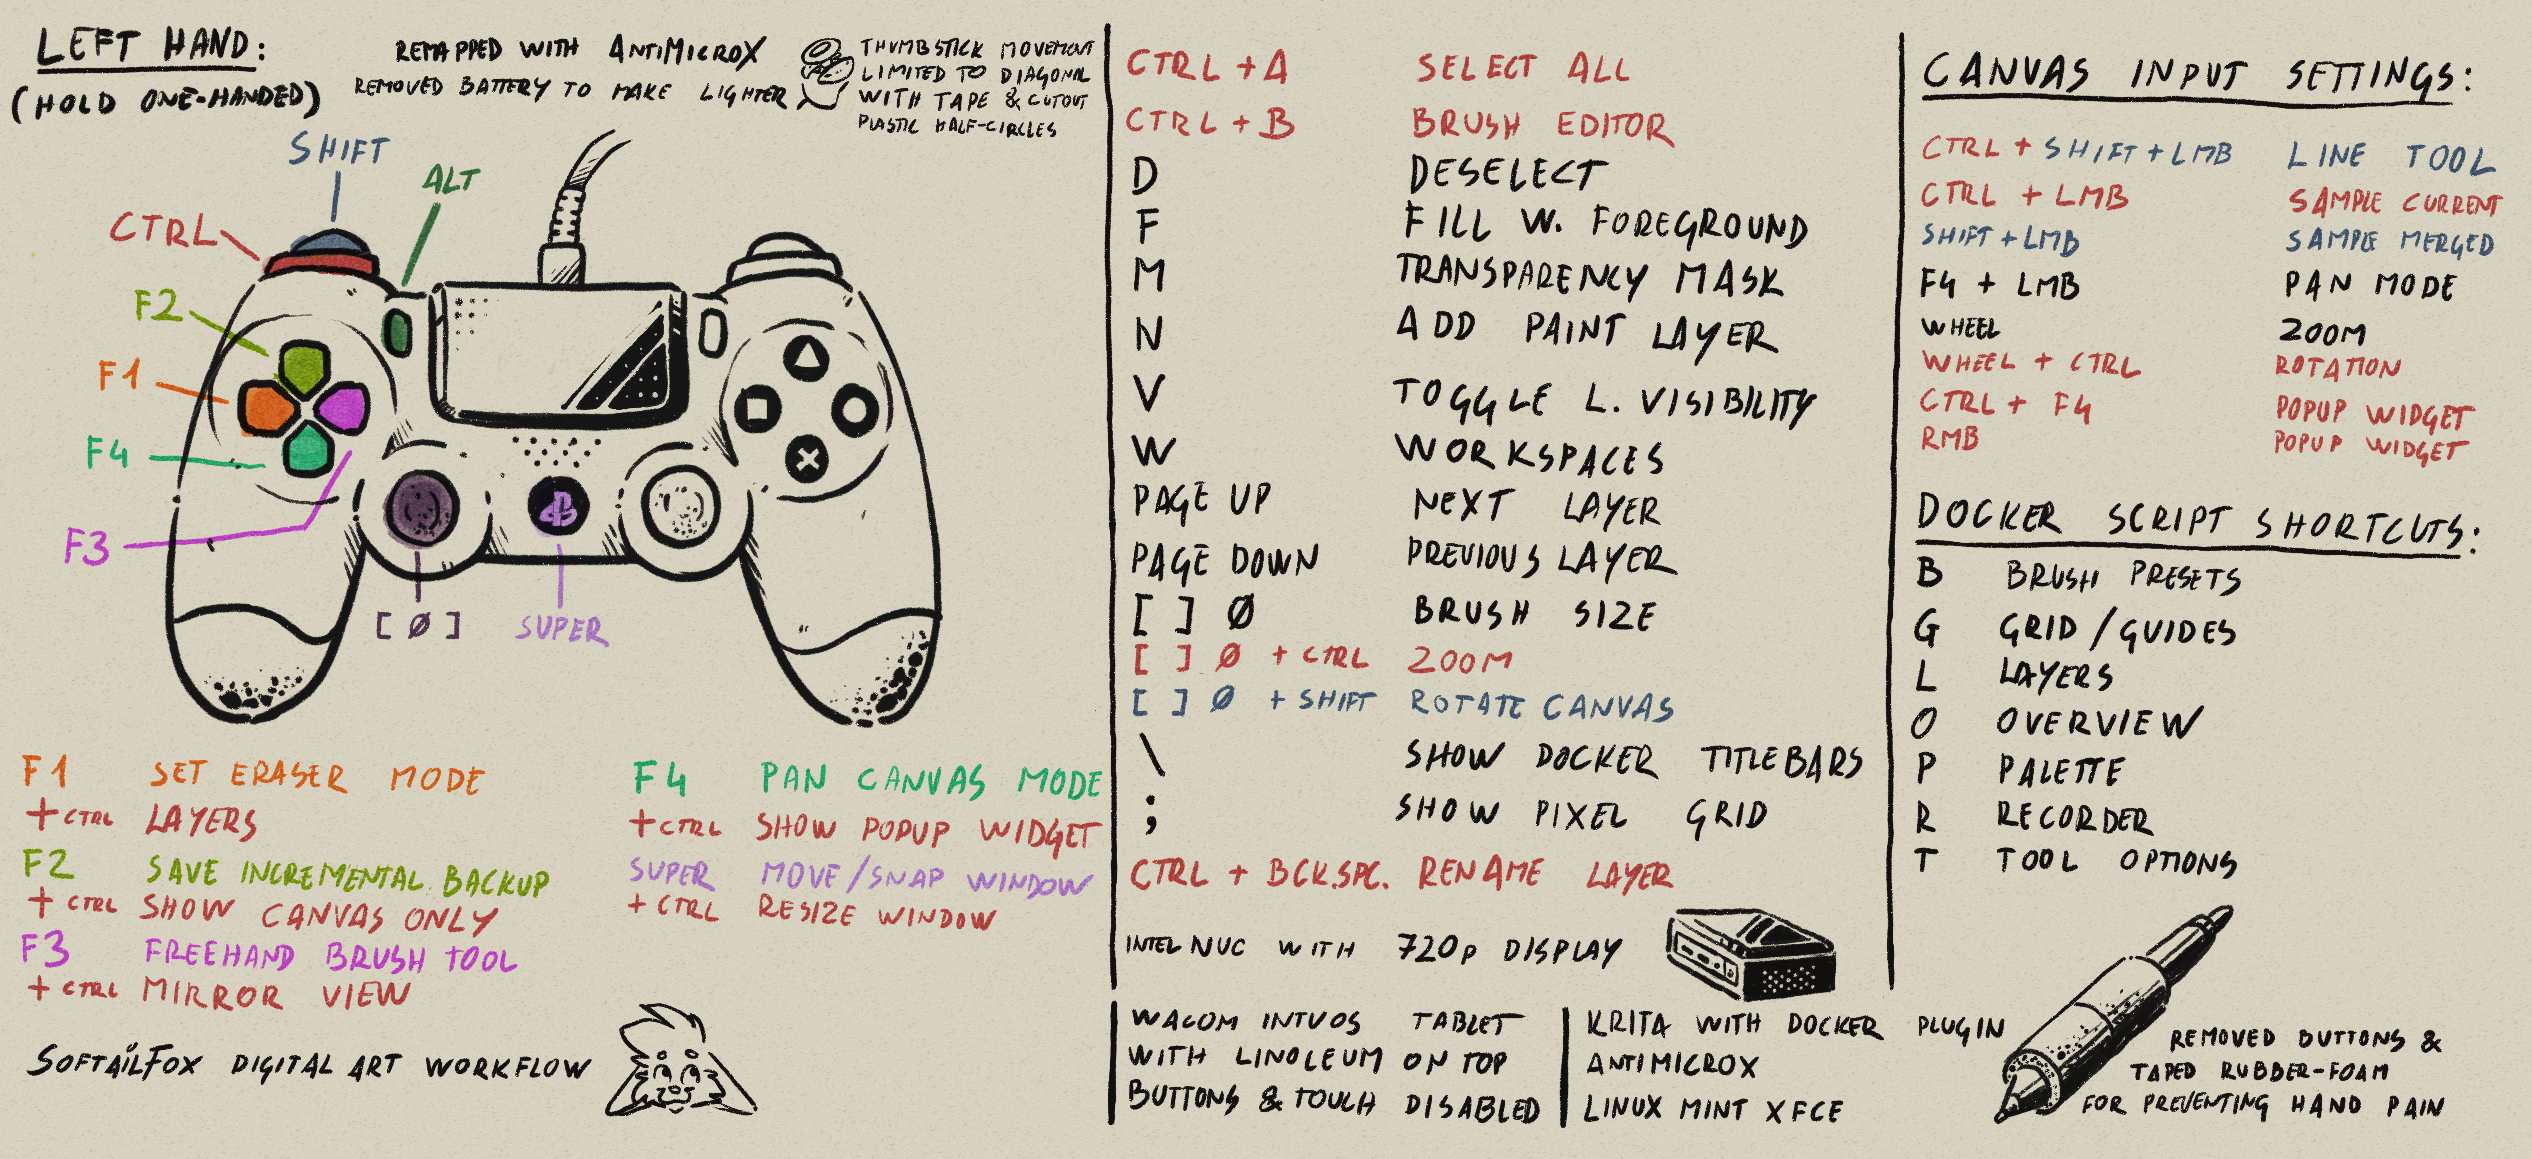 LEFT HAND:
(HOLD ONE-HANDED)
REMAPPED WITH ANTIMICROX
REMOVED BATTERY TO MAKE LIGHTER
THUMBSTICK MOVEMENT
LIMITED TO DIAGONAL
WITH TAPE & CUTOUT
PLASTIC HALF-CIRCLES
SHIFT
ALT
CTRL
F2
F1
F4
F3
[ Ø ]
SUPER
F1 SET ERASER MODE
+ CTRL LAYERS
F2 SAVE INCREMENTAL BACKUP
+ CTRL SHOW CANVAS ONLY
F3 FREEHAND BRUSH TOOL
+ CTRL MIRROR VIEW
F4 PAN CANVAS MODE
+ CTRL SHOW POPUP WIDGET
SUPER MOVE/SNAP WINDOW
+ CTRL RESIZE WINDOW
SOFTAÏLFOX DIGITAL ART WORKFLOW
CTRL + A SELECT ALL
CTRL + B BRUSH EDITOR
D DESELECT
F FILL W. FOREGROUND
M TRANSPARENCY MASK
N ADD PAINT LAYER
V TOGGLE L. VISIBILITY
W WORKSPACES
PAGE UP NEXT LAYER
PAGE DOWN PREVIOUS LAYER
[ ] Ø BRUSH SIZE
[ ] Ø + CTRL ZOOM
[ ] Ø + SHIFT ROTATE CANVAS
\ SHOW DOCKER TITLEBARS
; SHOW PIXEL GRID
CTRL + BCK.SPC. RENAME LAYER
INTEL NUC WITH 720P DISPLAY
WACOM INTUOS TABLET
WITH LINOLEUM ON TOP
BUTTONS & TOUCH DISABLED
KRITA WITH DOCKER PLUGIN
ANTIMICROX
LINUX MINT XFCE
CANVAS INPUT SETTINGS:
CTRL + SHIFT + LMB LINE TOOL
CTRL + LMB SAMPLE CURRENT
SHIFT + LMB SAMPLE MERGED
F4 + LMB PAN MODE
WHEEL ZOOM
WHEEL + CTRL ROTATION
CTRL + F4 POPUP WIDGET
RMB POPUP WIDGET
DOCKER SCRIPT SHORTCUTS:
B BRUSH PRESETS
G GRID/GUIDES
L LAYERS
O OVERVIEW
P PALETTE
R RECORDER
T TOOL OPTIONS
REMOVED BUTTONS &
TAPED RUBBER-FOAM
FOR PREVENTING HAND PAIN